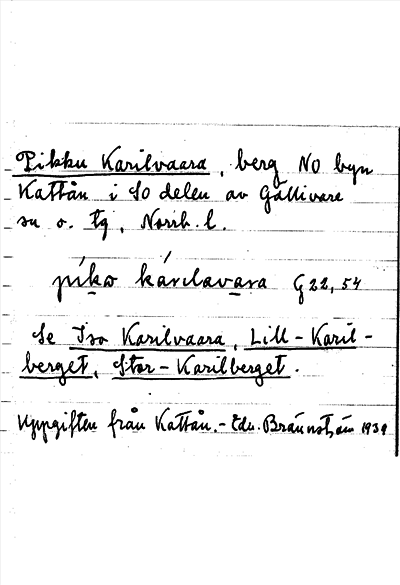 Pikku Karilvaara, berg NO byn
Kattån i SO delen av Gällivare
sn o. tg, Norrb. l.
píko kárilavara G 22, 54
Se Iso Karilvaara, Lill-Karil-
berget, Stor-Karilberget.
Uppgiften från Kattån. - Edv. Brännström 1939